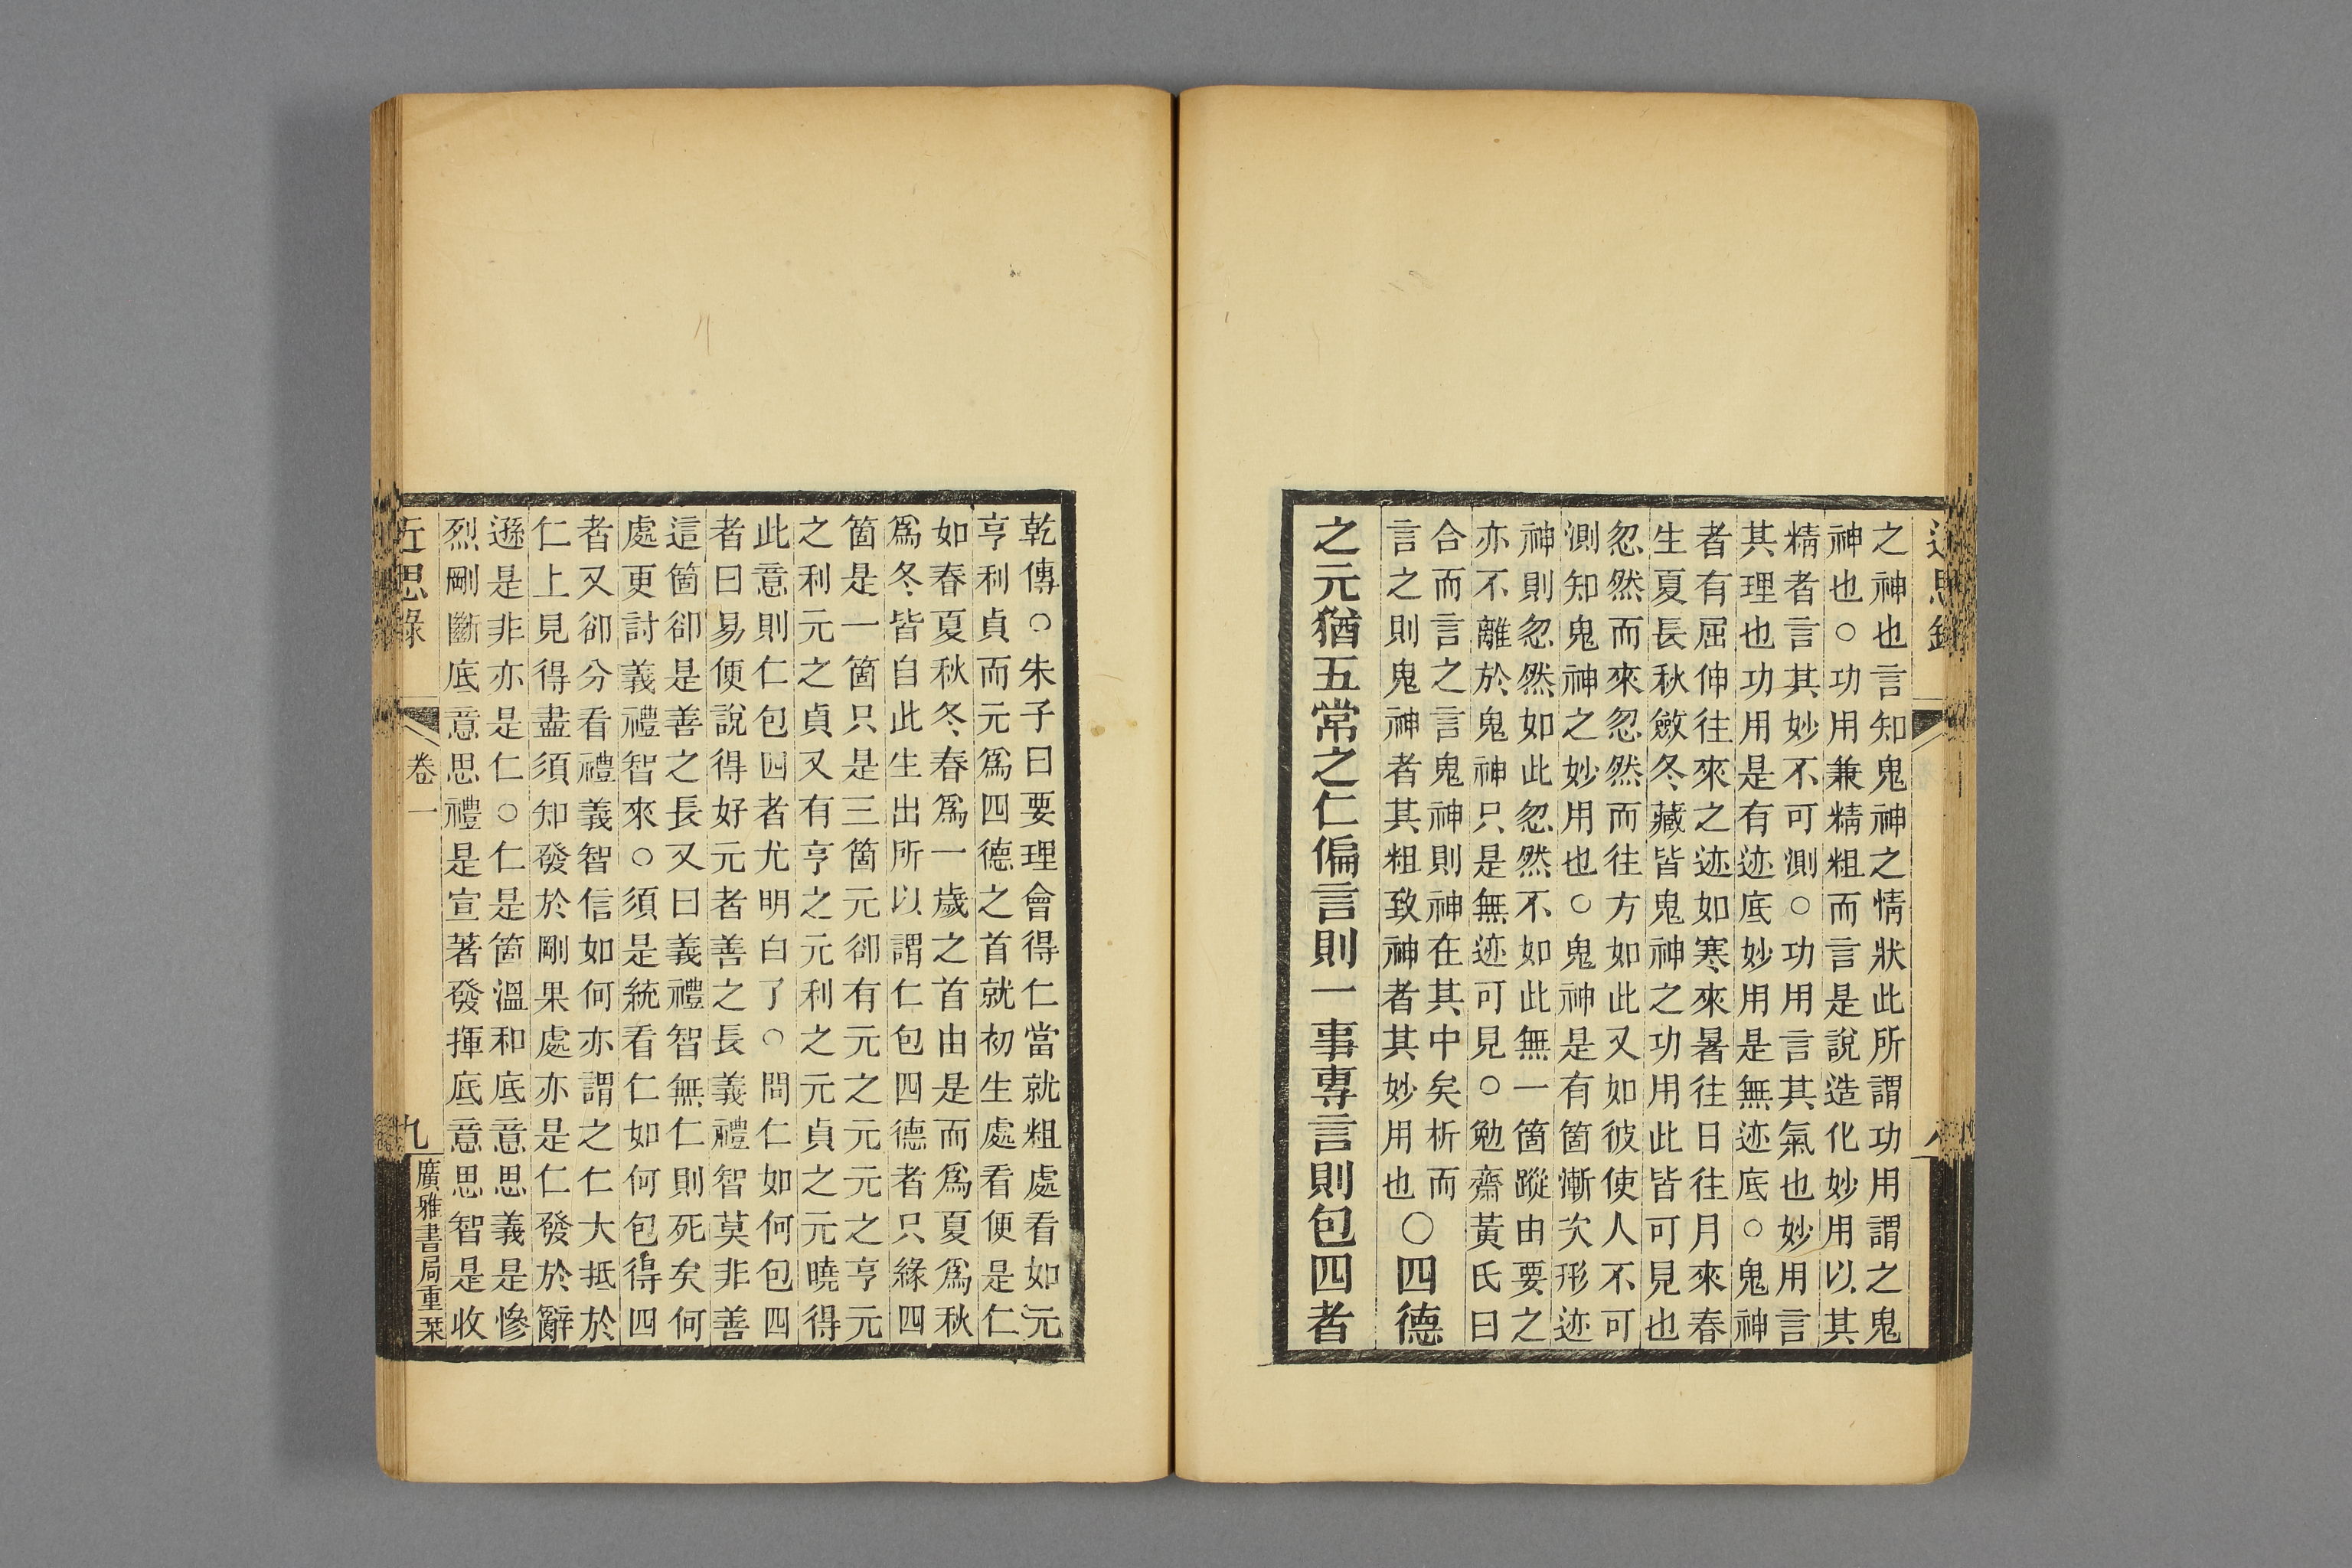 近思錄
八
之神也言知鬼神之情狀此所謂功用謂之鬼
神也○功用兼精粗而言是說造化妙用以其
精者言其妙不可測○功用言其氣也妙用言
其理也功用是有迹底妙用是無迹底○鬼神
者有屈伸往來之迹如寒來暑往日往月來春
生夏長秋斂冬藏皆鬼神之功用此皆可見也
忽然而來忽然而往方如此又如彼使人不可
測知鬼神之妙用也○鬼神是有箇漸次形迹
神則忽然如此忽然不如此無一箇蹤由要之
亦不離於鬼神只是無迹可見○勉齋黃氏曰
合而言之言鬼神則神在其中矣析而
言之則鬼神者其粗致神者其妙用也
○四德
之元猶五常之仁偏言則一事專言則包四者
乾傳○朱子曰要理會得仁當就粗處看如元
亨利貞而元爲四德之首就初生處看便是仁
如春夏秋冬春爲一歲之首由是而爲夏爲秋
爲冬皆自此生出所以謂仁包四德者只緣四
箇是一箇只是三箇元卻有元之元元之亨元
之利元之貞又有亨之元利之元貞之元曉得
此意則仁包四者尤明白了○問仁如何包四
者曰易便說得好元者善之長義禮智莫非善
這箇卻是善之長又曰義禮智無仁則死矣何
處更討義禮智來○須是統看仁如何包得四
者又卻分看禮義智信如何亦謂之仁大抵於
仁上見得盡須知發於剛果處亦是仁發於辭
遜是非亦是仁○仁是箇溫和底意思義是慘
烈剛斷底意思禮是宣著發揮底意思智是收
近思錄
卷一
九
廣雅書局重栞